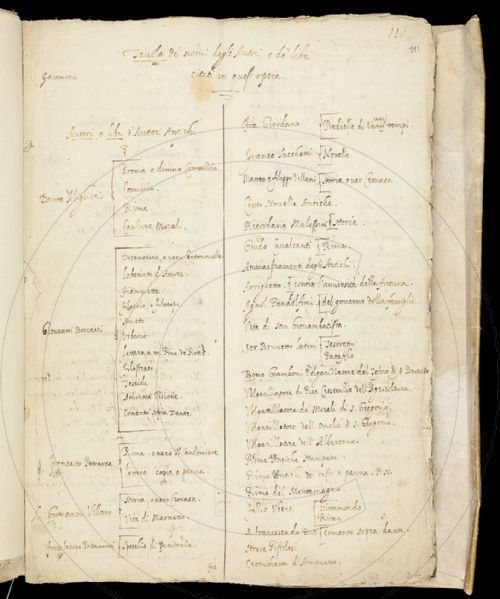 111
111
Tavola de nomi degli Autori, e de libri
citati in quest opera.
Autori, o libri d'Autori Antichi
Dante Alghieri
Poema o divina Commedia
Convivio.
Rime.
Canzone Morali.
Giovanni Boccacci
Decamerone, o vero Centonovelle.
Laberinto d'Amore.
Fiammetta.
Filocolo
Ameto.
Urbano.
Lettera a m. Pino de Rossi.
Filostrato
Teseide.
Amorosa Visione.
Comento sopra Dante
Francesco Petrarca
Rime, o vero il Canzoniere
copia a penna.
Giovanni Villani
Storia, o vero Cronaca.
Vita di Maometto.
frate Iacopo Passavanti
Specchio di Penitenza.
fra
Fra Giordano
Prediche di varij tempi.
Franco Sacchetti
Novelle
Matteo e Filippo Villani
Storia, o ver Cronaca
Cento Novelle Antiche.
Ricordano Malespini
Storia
Guido Cavalcanti
Rime.
Ammaestramenti degli Antichi.
Arrighetto
contra l'avversità della fortuna.
Agnol Pandolfini
del governo della famiglia.
Vita di San Giovambatista.
Ser Brunetto Latini
Tesoretto
Pataffio
Bono Giamboni Volgarizzatore del Tesoro di S. Brunetto
Volgarizzatore di Pier Crescenzio dell'Agricoltura.
Volgarizzatore de Morali di S. Gregorio.
Volgarizzatore dell'Omelie di S. Gregorio.
Volgarizzatore dell'Albertano.
Rime Antiche Stampate.
Rime Antiche del testo a penna.
Rime del Montemagno
Fazio Uberti
Dittamondo
Rime
M. Francesco da Buti
Comento sopra Dante.
Storie Pistolesi
Cronichetta d'Amaretto.